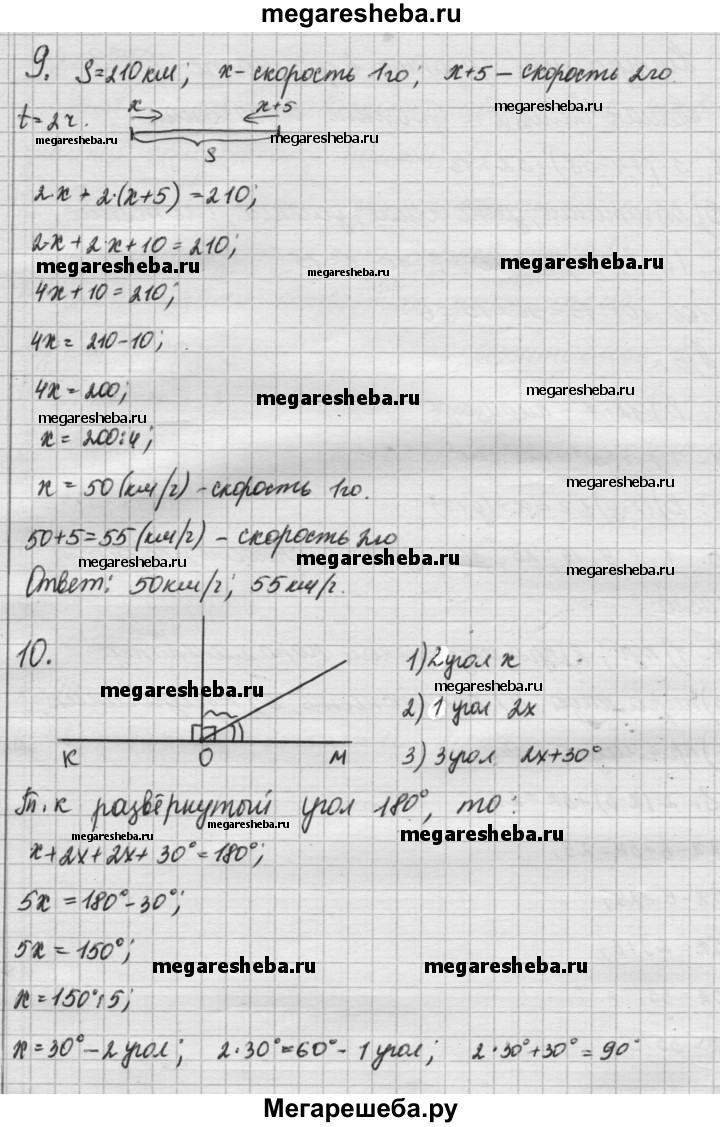 megaresheba.ru
9. S=210км; x-скорость 1го; x+5 – скорость 2го.
megaresheba.ru
t=2ч. x x+5
megaresheba.ru megaresheba.ru
S
2·x + 2·(x+5) = 210;
2·x + 2·x + 10 = 210;
megaresheba.ru megaresheba.ru megaresheba.ru
4x + 10 = 210;
4x = 210-10;
4x = 200;
megaresheba.ru megaresheba.ru
megaresheba.ru
x = 200:4;
x = 50 (км/ч) - скорость 1го.
megaresheba.ru
50+5=55 (км/ч) - скорость 2го
megaresheba.ru megaresheba.ru megaresheba.ru
Ответ: 50км/ч; 55км/ч.
10. 1) 2 угол x
megaresheba.ru megaresheba.ru
2) 1 угол 2x
К О М 3) 3 угол 2x+30°
Т.к развёрнутый угол 180°, то:
megaresheba.ru megaresheba.ru megaresheba.ru
x+2x+2x+30°=180°;
5x = 180°-30°;
5x = 150°;
megaresheba.ru megaresheba.ru
x = 150°:5;
x = 30° – 2 угол; 2·30°=60° - 1 угол; 2·30°+30° = 90°
Мегарешеба.ру